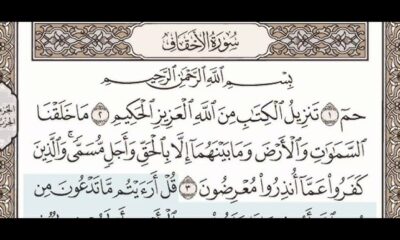 سُورَةُ الأَحْقَافِ
بِسْمِ اللَّهِ الرَّحْمَٰنِ الرَّحِيمِ
حمٓ ۝١ تَنزِيلُ ٱلْكِتَٰبِ مِنَ ٱللَّهِ ٱلْعَزِيزِ ٱلْحَكِيمِ ۝٢ مَا خَلَقْنَا
ٱلسَّمَٰوَٰتِ وَٱلْأَرْضَ وَمَا بَيْنَهُمَآ إِلَّا بِٱلْحَقِّ وَأَجَلٍ مُّسَمًّى ۚ وَٱلَّذِينَ
كَفَرُوا۟ عَمَّآ أُنذِرُوا۟ مُعْرِضُونَ ۝٣ قُلْ أَرَءَيْتُم مَّا تَدْعُونَ مِن